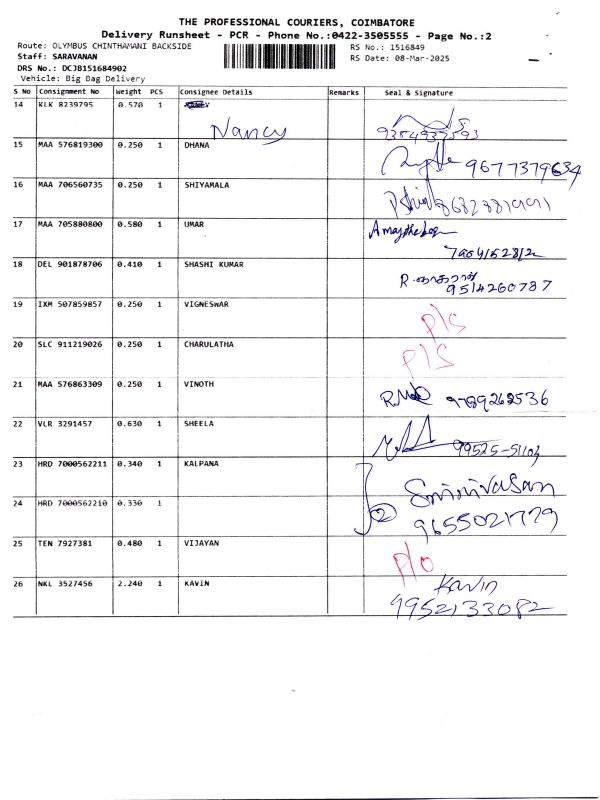 THE PROFESSIONAL COURIERS, COIMBATORE
Delivery Runsheet - PCR - Phone No.:0422-3505555 - Page No.:2
Route: OLYMBUS CHINTHAMANI BACKSIDE RS No.: 1516849
Staff: SARAVANAN RS Date: 08-Mar-2025
DRS No.: DCJB151684902
Vehicle: Big Bag Delivery
S No Consignment No Weight PCS Consignee Details Remarks Seal & Signature
14 KLK 8239795 0.570 1
Nancy
15 MAA 576819300 0.250 1 DHANA
9677379634
16 MAA 706560735 0.250 1 SHIYAMALA
17 MAA 705880800 0.580 1 UMAR
18 DEL 901878706 0.410 1 SHASHI KUMAR
9514260787
19 IXM 507859857 0.250 1 VIGNESWAR
P/S
20 SLC 911219026 0.250 1 CHARULATHA
P/S
21 MAA 576863309 0.250 1 VINOTH
9789262536
22 VLR 3291457 0.630 1 SHEELA
23 HRD 7000562211 0.340 1 KALPANA
Srinivasan
24 HRD 7000562210 0.330 1
2 9655021779
25 TEN 7927381 0.480 1 VIJAYAN
P/O
26 NKL 3527456 2.240 1 KAVIN Kavin
9952133082